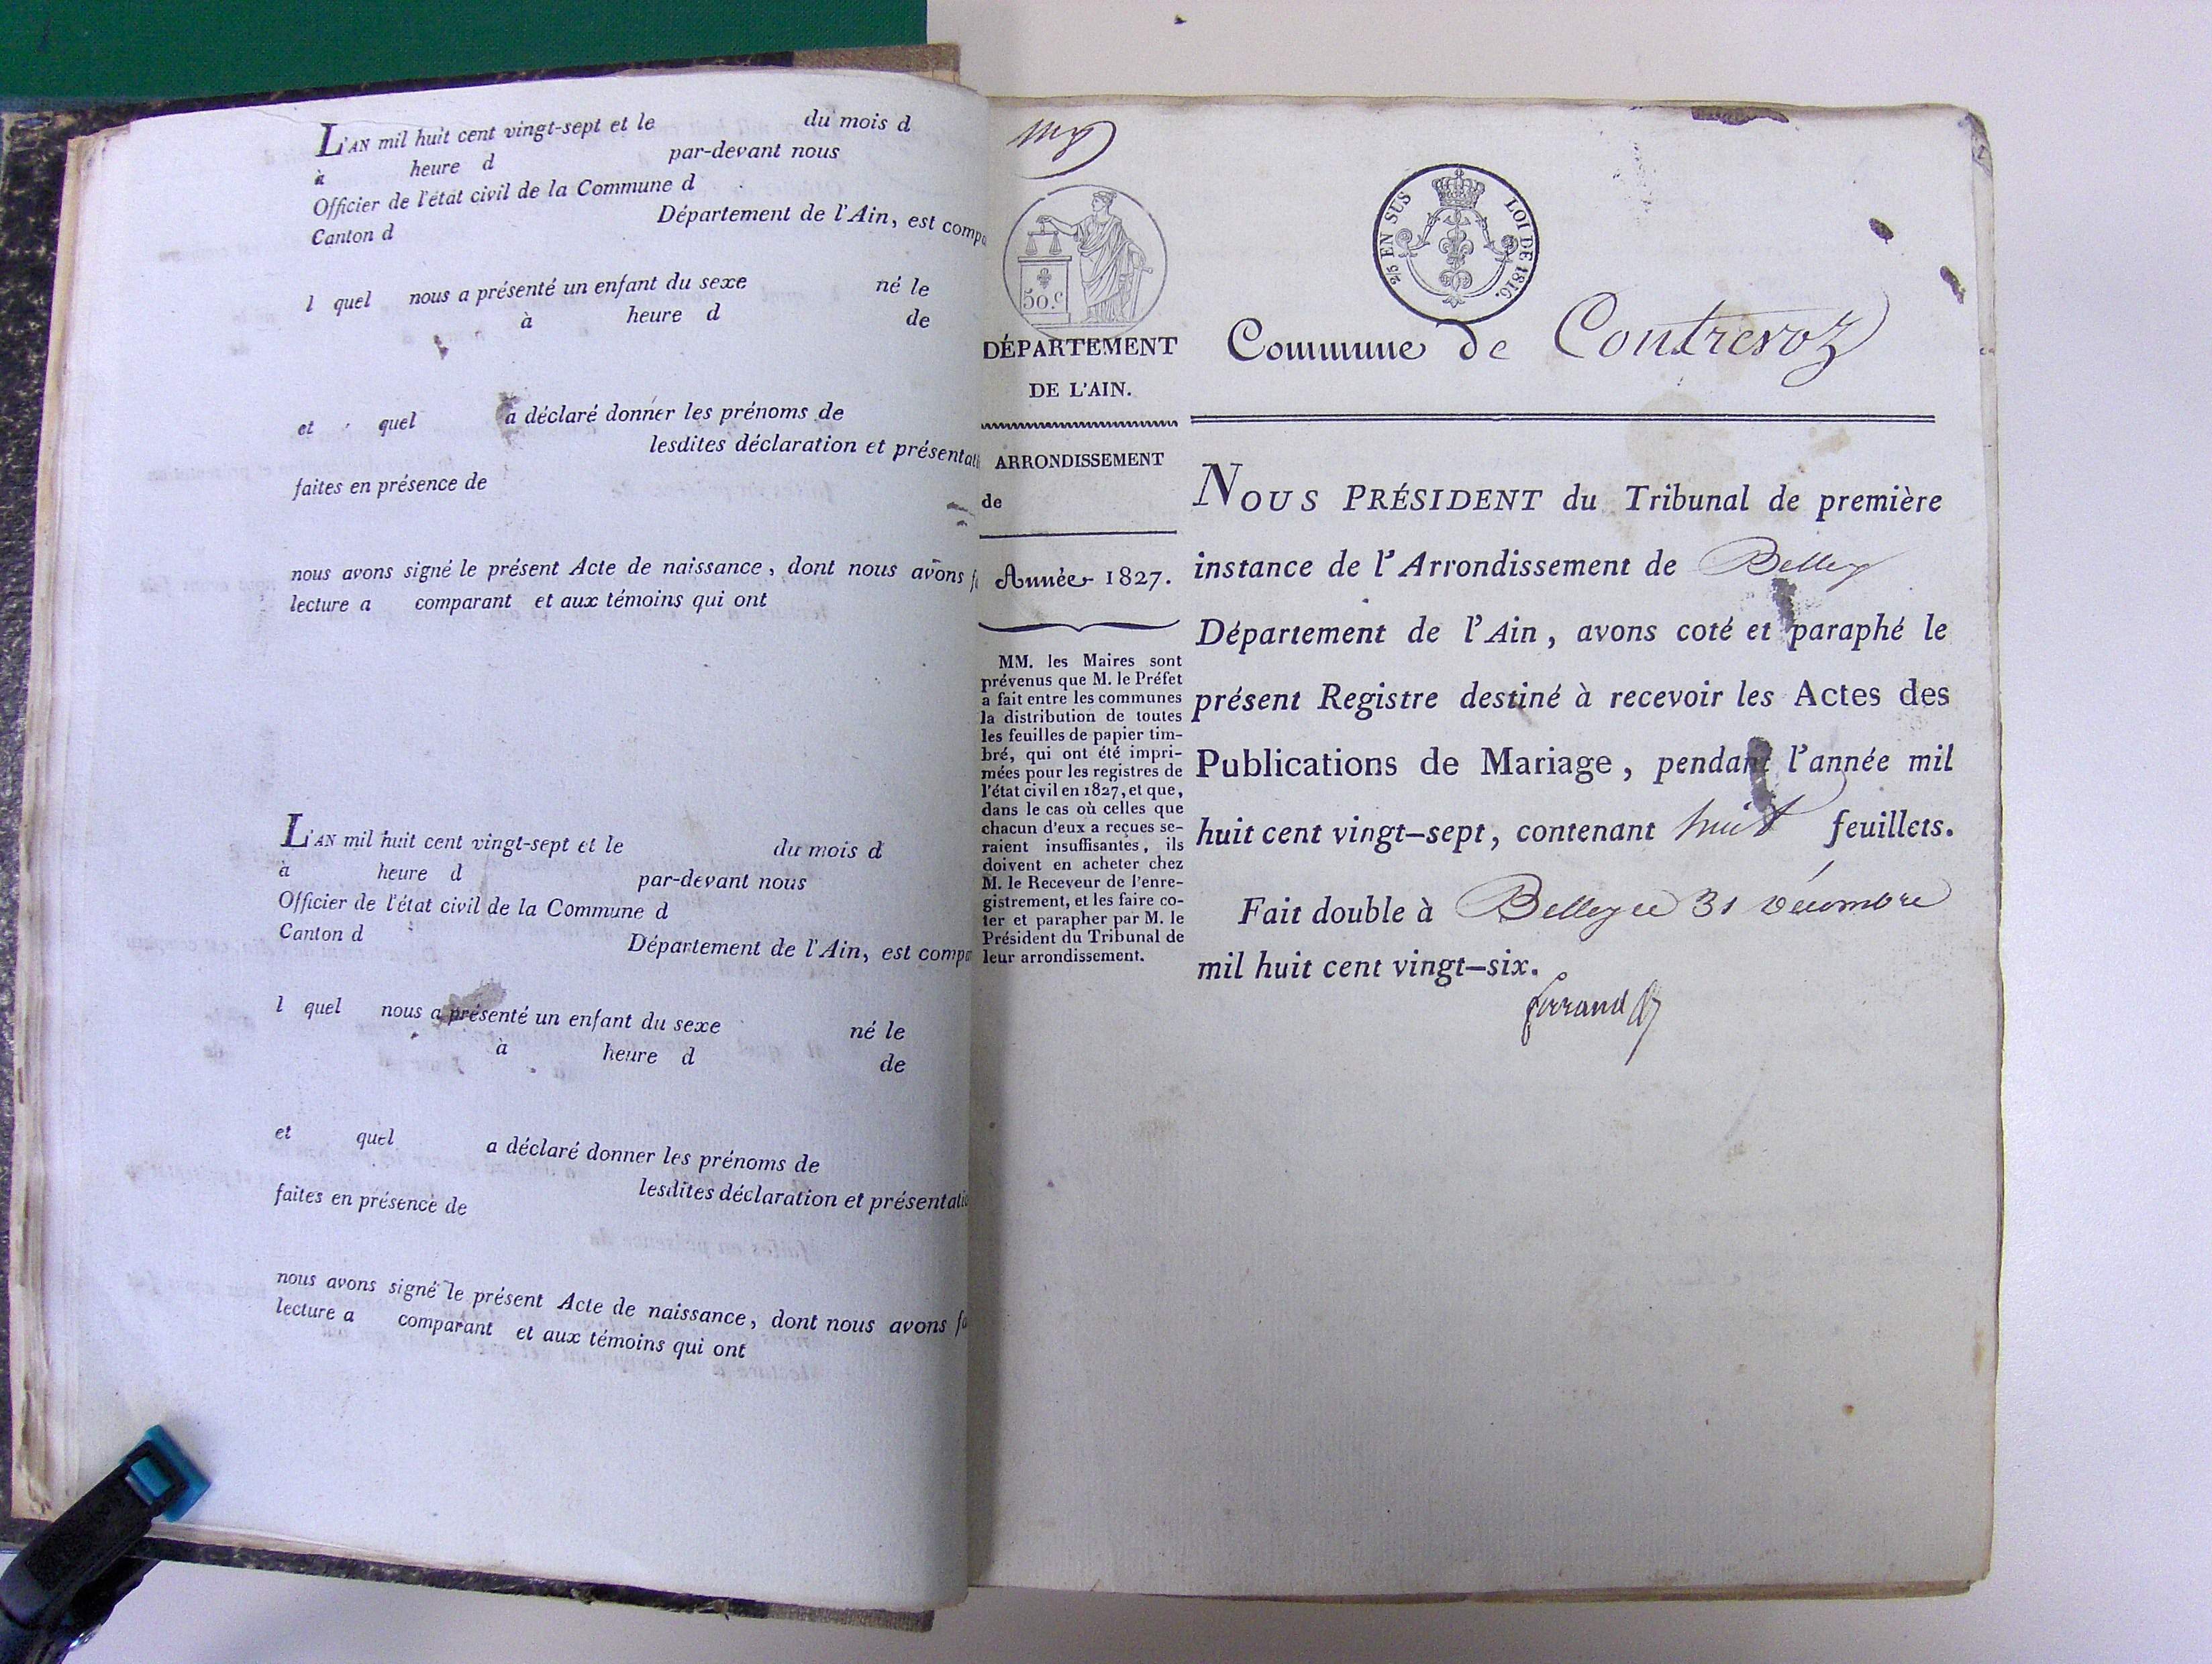 L'AN mil huit cent vingt-sept et le du mois d
à heure d par-devant nous
Officier de l'état civil de la Commune d
Canton d Département de l'Ain, est compa
l quel nous a présenté un enfant du sexe né le
à heure d de
et quel a déclaré donner les prénoms de
lesdites déclaration et présentati
faites en présence de
nous avons signé le présent Acte de naissance, dont nous avons f
lecture a comparant et aux témoins qui ont
L'AN mil huit cent vingt-sept et le du mois d
à heure d par-devant nous
Officier de l'état civil de la Commune d
Canton d Département de l'Ain, est compa
l quel nous a présenté un enfant du sexe né le
à heure d de
et quel a déclaré donner les prénoms de
lesdites déclaration et présentatio
faites en présence de
nous avons signé le présent Acte de naissance, dont nous avons fa
lecture a comparant et aux témoins qui ont
50.c
2/5 EN SUS LOI DE 1816.
DÉPARTEMENT
DE L'AIN.
ARRONDISSEMENT
de
Année 1827.
MM. les Maires sont
prévenus que M. le Préfet
a fait entre les communes
la distribution de toutes
les feuilles de papier tim-
bré, qui ont été impri-
mées pour les registres de
l'état civil en 1827, et que,
dans le cas où celles que
chacun d'eux a reçues se-
raient insuffisantes, ils
doivent en acheter chez
M. le Receveur de l'enre-
gistrement, et les faire co-
ter et parapher par M. le
Président du Tribunal de
leur arrondissement.
Commune de Contrevoz
NOUS PRÉSIDENT du Tribunal de première
instance de l'Arrondissement de Belley
Département de l'Ain, avons coté et paraphé le
présent Registre destiné à recevoir les Actes des
Publications de Mariage, pendant l'année mil
huit cent vingt-sept, contenant huit feuillets.
Fait double à Belley le 31 décembre
mil huit cent vingt-six.
ferrand